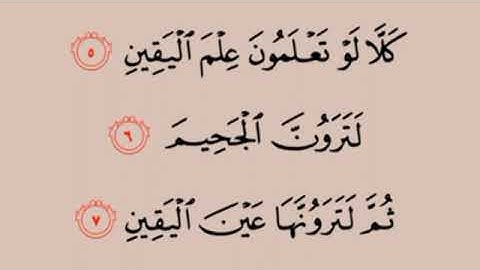 كَلَّا لَوْ تَعْلَمُونَ عِلْمَ ٱلْيَقِينِ ٥
لَتَرَوُنَّ ٱلْجَحِيمَ ٦
ثُمَّ لَتَرَوُنَّهَا عَيْنَ ٱلْيَقِينِ ٧